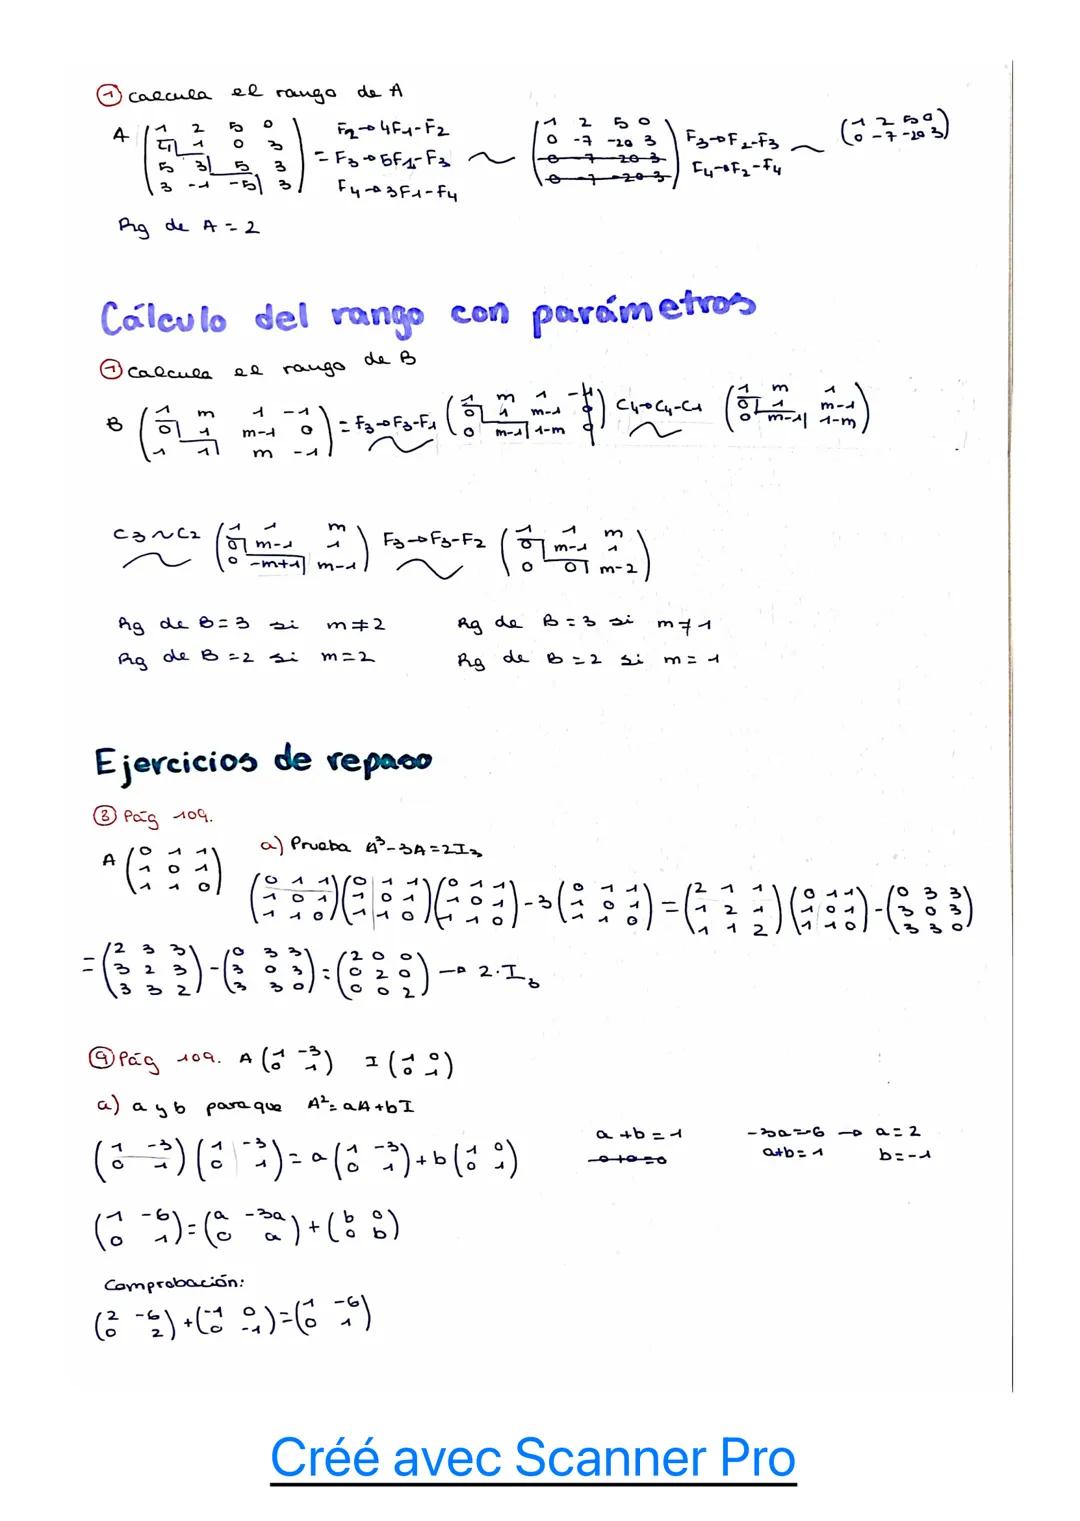 ① Calcula el rango de A
A (1 2 5 0 / 4 1 0 3 / 5 3 5 3 / 3 -1 -5 3) = F2→4F1-F2 F3→5F1-F3 F4→3F1-F4 ~ (1 2 5 0 / 0 -7 -20 3 / 0 -7 -20 3 / 0 -7 -20 3) F3→F2-F3 F4→F2-F4 ~ (1 2 5 0 / 0 -7 -20 3)
Rg de A = 2
Cálculo del rango con parámetros
① Calcula el rango de B
B (1 m 1 -1 / 0 1 m-1 0 / 1 1 m -1) = F3→F3-F1 ~ (1 m 1 -1 / 0 1 m-1 0 / 0 m-1 1-m 0) C4→C4-C1 ~ (1 m 1 / 0 1 m-1 / 0 m-1 1-m)
C3~C2 ~ (1 1 m / 0 m-1 1 / 0 -m+1 m-1) F3→F3-F2 ~ (1 1 m / 0 m-1 1 / 0 0 m-2)
Rg de B=3 si m≠2 Rg de B=3 si m≠1
Rg de B=2 si m=2 Rg de B=2 si m=1
Ejercicios de repaso
③ Pág 109.
A (0 1 1 / 1 0 1 / 1 1 0) a) Prueba A³-3A=2I3
(0 1 1 / 1 0 1 / 1 1 0)(0 1 1 / 1 0 1 / 1 1 0)(0 1 1 / 1 0 1 / 1 1 0)-3(0 1 1 / 1 0 1 / 1 1 0)=(2 1 1 / 1 2 1 / 1 1 2)(0 1 1 / 1 0 1 / 1 1 0)-(0 3 3 / 3 0 3 / 3 3 0)
=(2 3 3 / 3 2 3 / 3 3 2)-(0 3 3 / 3 0 3 / 3 3 0)=(2 0 0 / 0 2 0 / 0 0 2) → 2·I3
⑨ Pág 109. A (1 -3 / 0 1) I (1 0 / 0 1)
a) a y b para que A²=aA+bI
(1 -3 / 0 1)(1 -3 / 0 1)=a(1 -3 / 0 1)+b(1 0 / 0 1) a+b=1 0+0=0 -3a=-6 → a=2 a+b=1 b=-1
(1 -6 / 0 1)=(a -3a / 0 a)+(b 0 / 0 b)
Comprobación:
(2 -6 / 0 2)+(-1 0 / 0 -1)=(1 -6 / 0 1)
Créé avec Scanner Pro